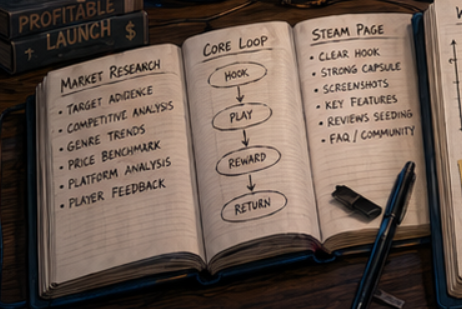 PROFITABLE
LAUNCH $
MARKET RESEARCH
• TARGET ADIENCE
• COMPETITIVE ANALYSIS
• GENRE TRENDS
• PRICE BENCHMARK
• PLATFORM ANALYSIS
• PLAYER FEEDBACK
CORE LOOP
HOOK
PLAY
REWARD
RETURN
STEAM PAGE
• CLEAR HOOK
• STRONG CAPSULE
• SCREENSHOTS
• KEY FEATURES
• REVIEWS SEEDING
• FAQ / COMMUNITY